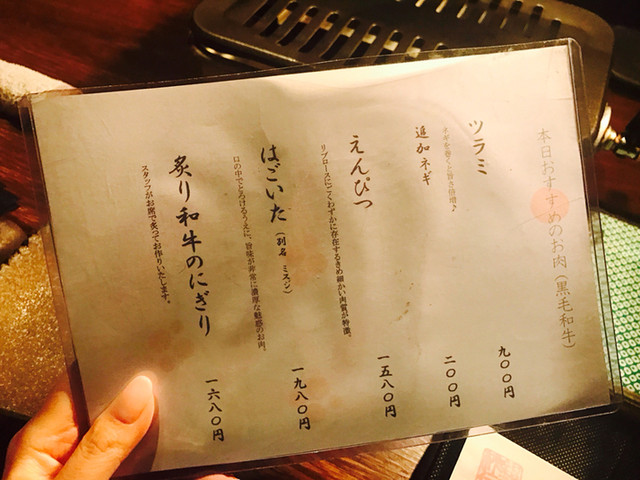 本日おすすめのお肉(黒毛和牛)
ツラミ 九〇〇円
追加ネギ 二〇〇円
ネギを巻くと旨さ倍増♪
えんぴつ 一五八〇円
リブロースにごくわずかに存在するきめ細かい肉質が特徴。
はごいた(別名 ミスジ) 一九八〇円
口の中でとろけるうえに、旨味が非常に濃厚な魅惑のお肉。
炙り和牛のにぎり 一六八〇円
スタッフがお席で炙ってお作りいたします。